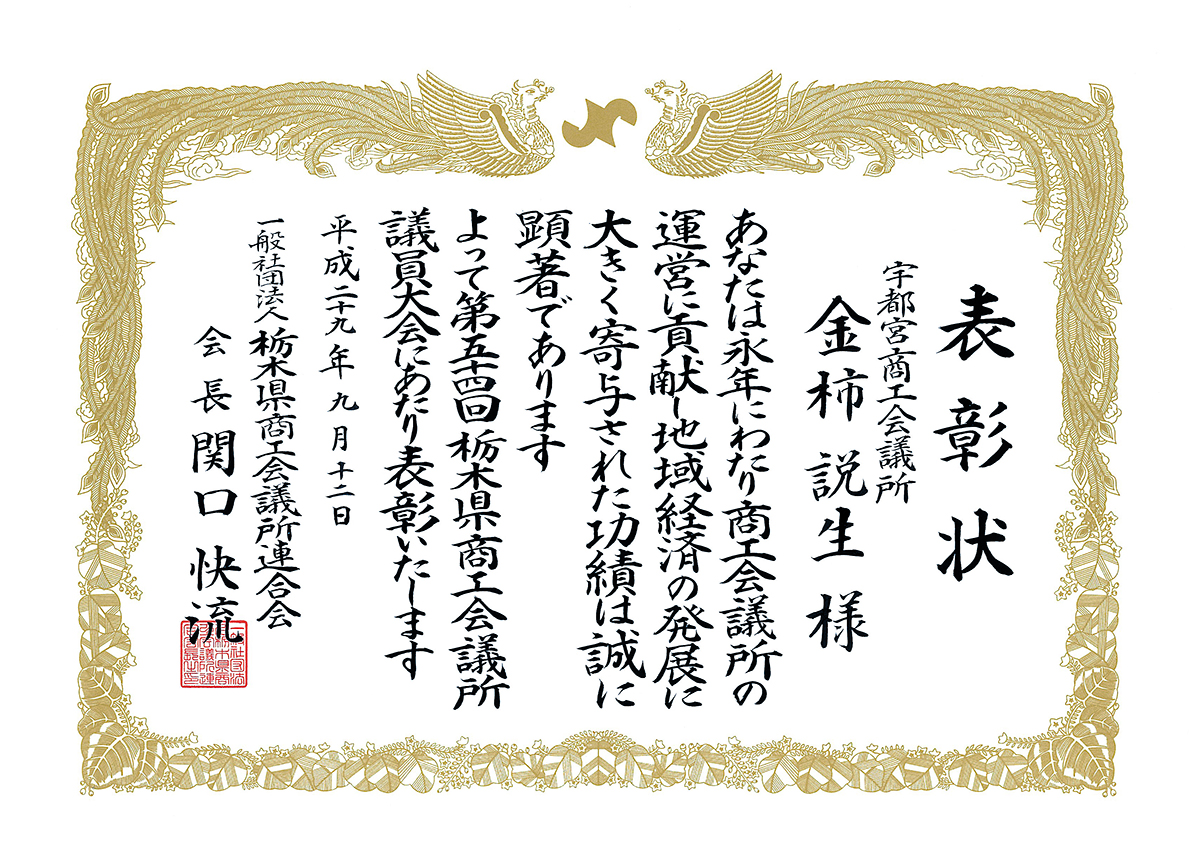 表彰状
宇都宮商工会議所
金柿説生様
あなたは永年にわたり商工会議所の
運営に貢献し地域経済の発展に
大きく寄与された功績は誠に
顕著であります
よって第五十四回栃木県商工会議所
議員大会にあたり表彰いたします
平成二十九年九月十二日
一般社団法人栃木県商工会議所連合会
会長関口快流